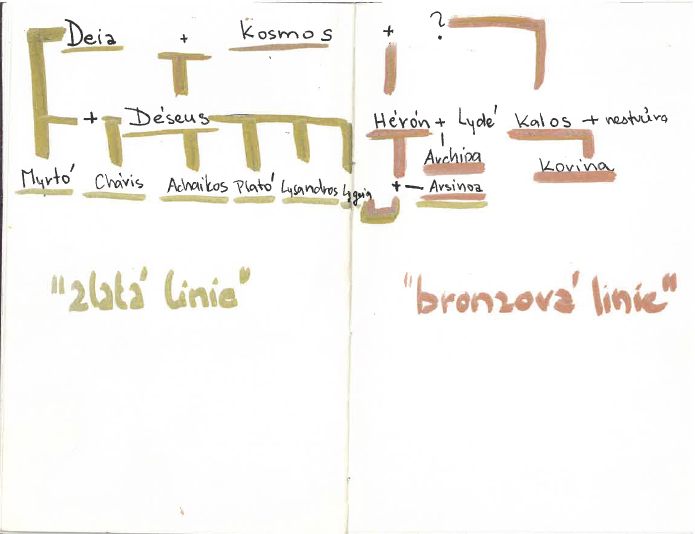 Deia + Kosmos + ?
+ Déseus Hérón + Lydé Kalos + nestvůra
Archipa
Korina
Myrtó Cháris Achaikos Plató Lysandros Lygeia + Arsinoa
"zlatá linie" "bronzová linie"